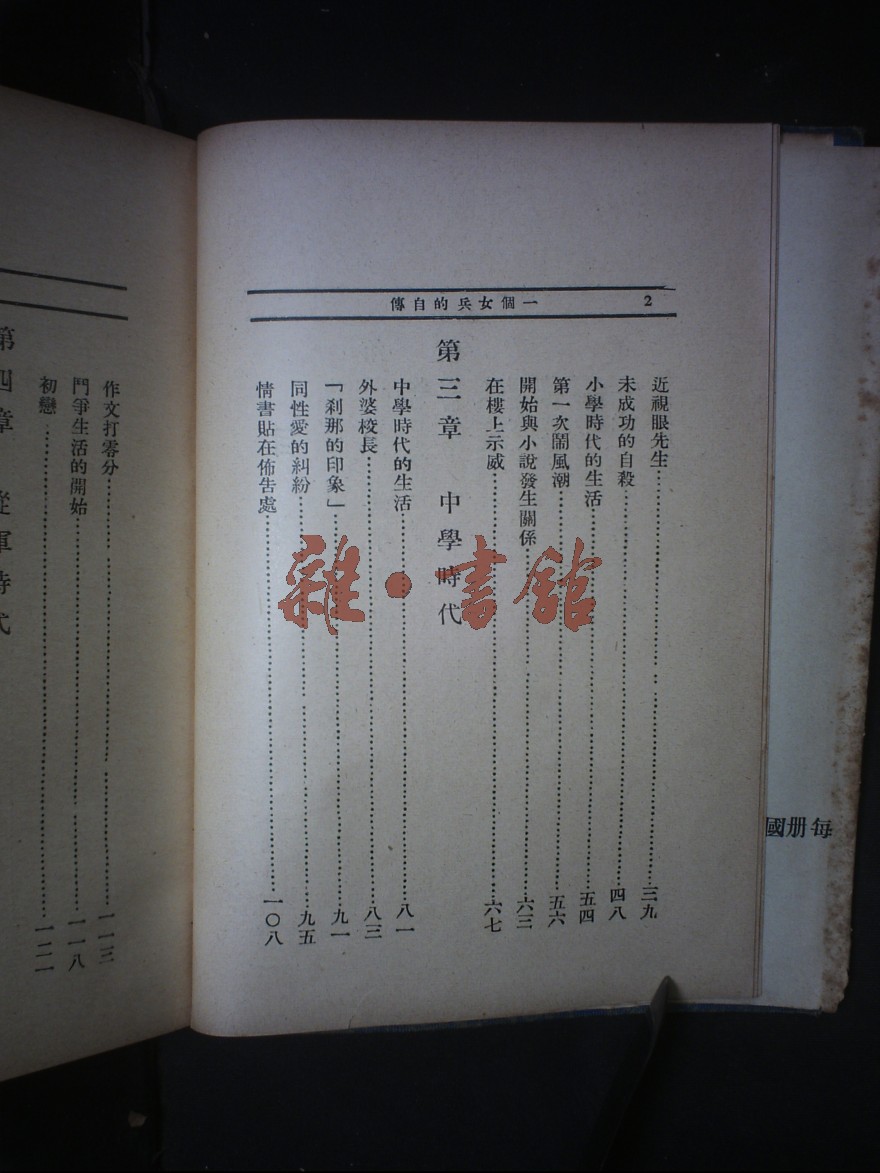 一個女兵的自傳 2
近視眼先生……三九
未成功的自殺……四八
小學時代的生活……五四
第一次鬧風潮……五六
開始與小說發生關係……六三
在樓上示威……六七
第三章 中學時代
中學時代的生活……八一
外婆校長……八三
「剎那的印象」……九一
同性愛的糾紛……九五
情書貼在佈告處……一〇八
作文打零分……一一三
鬥爭生活的開始……一一八
初戀……一二一
第四章 從軍時代
每册國
雜·書館